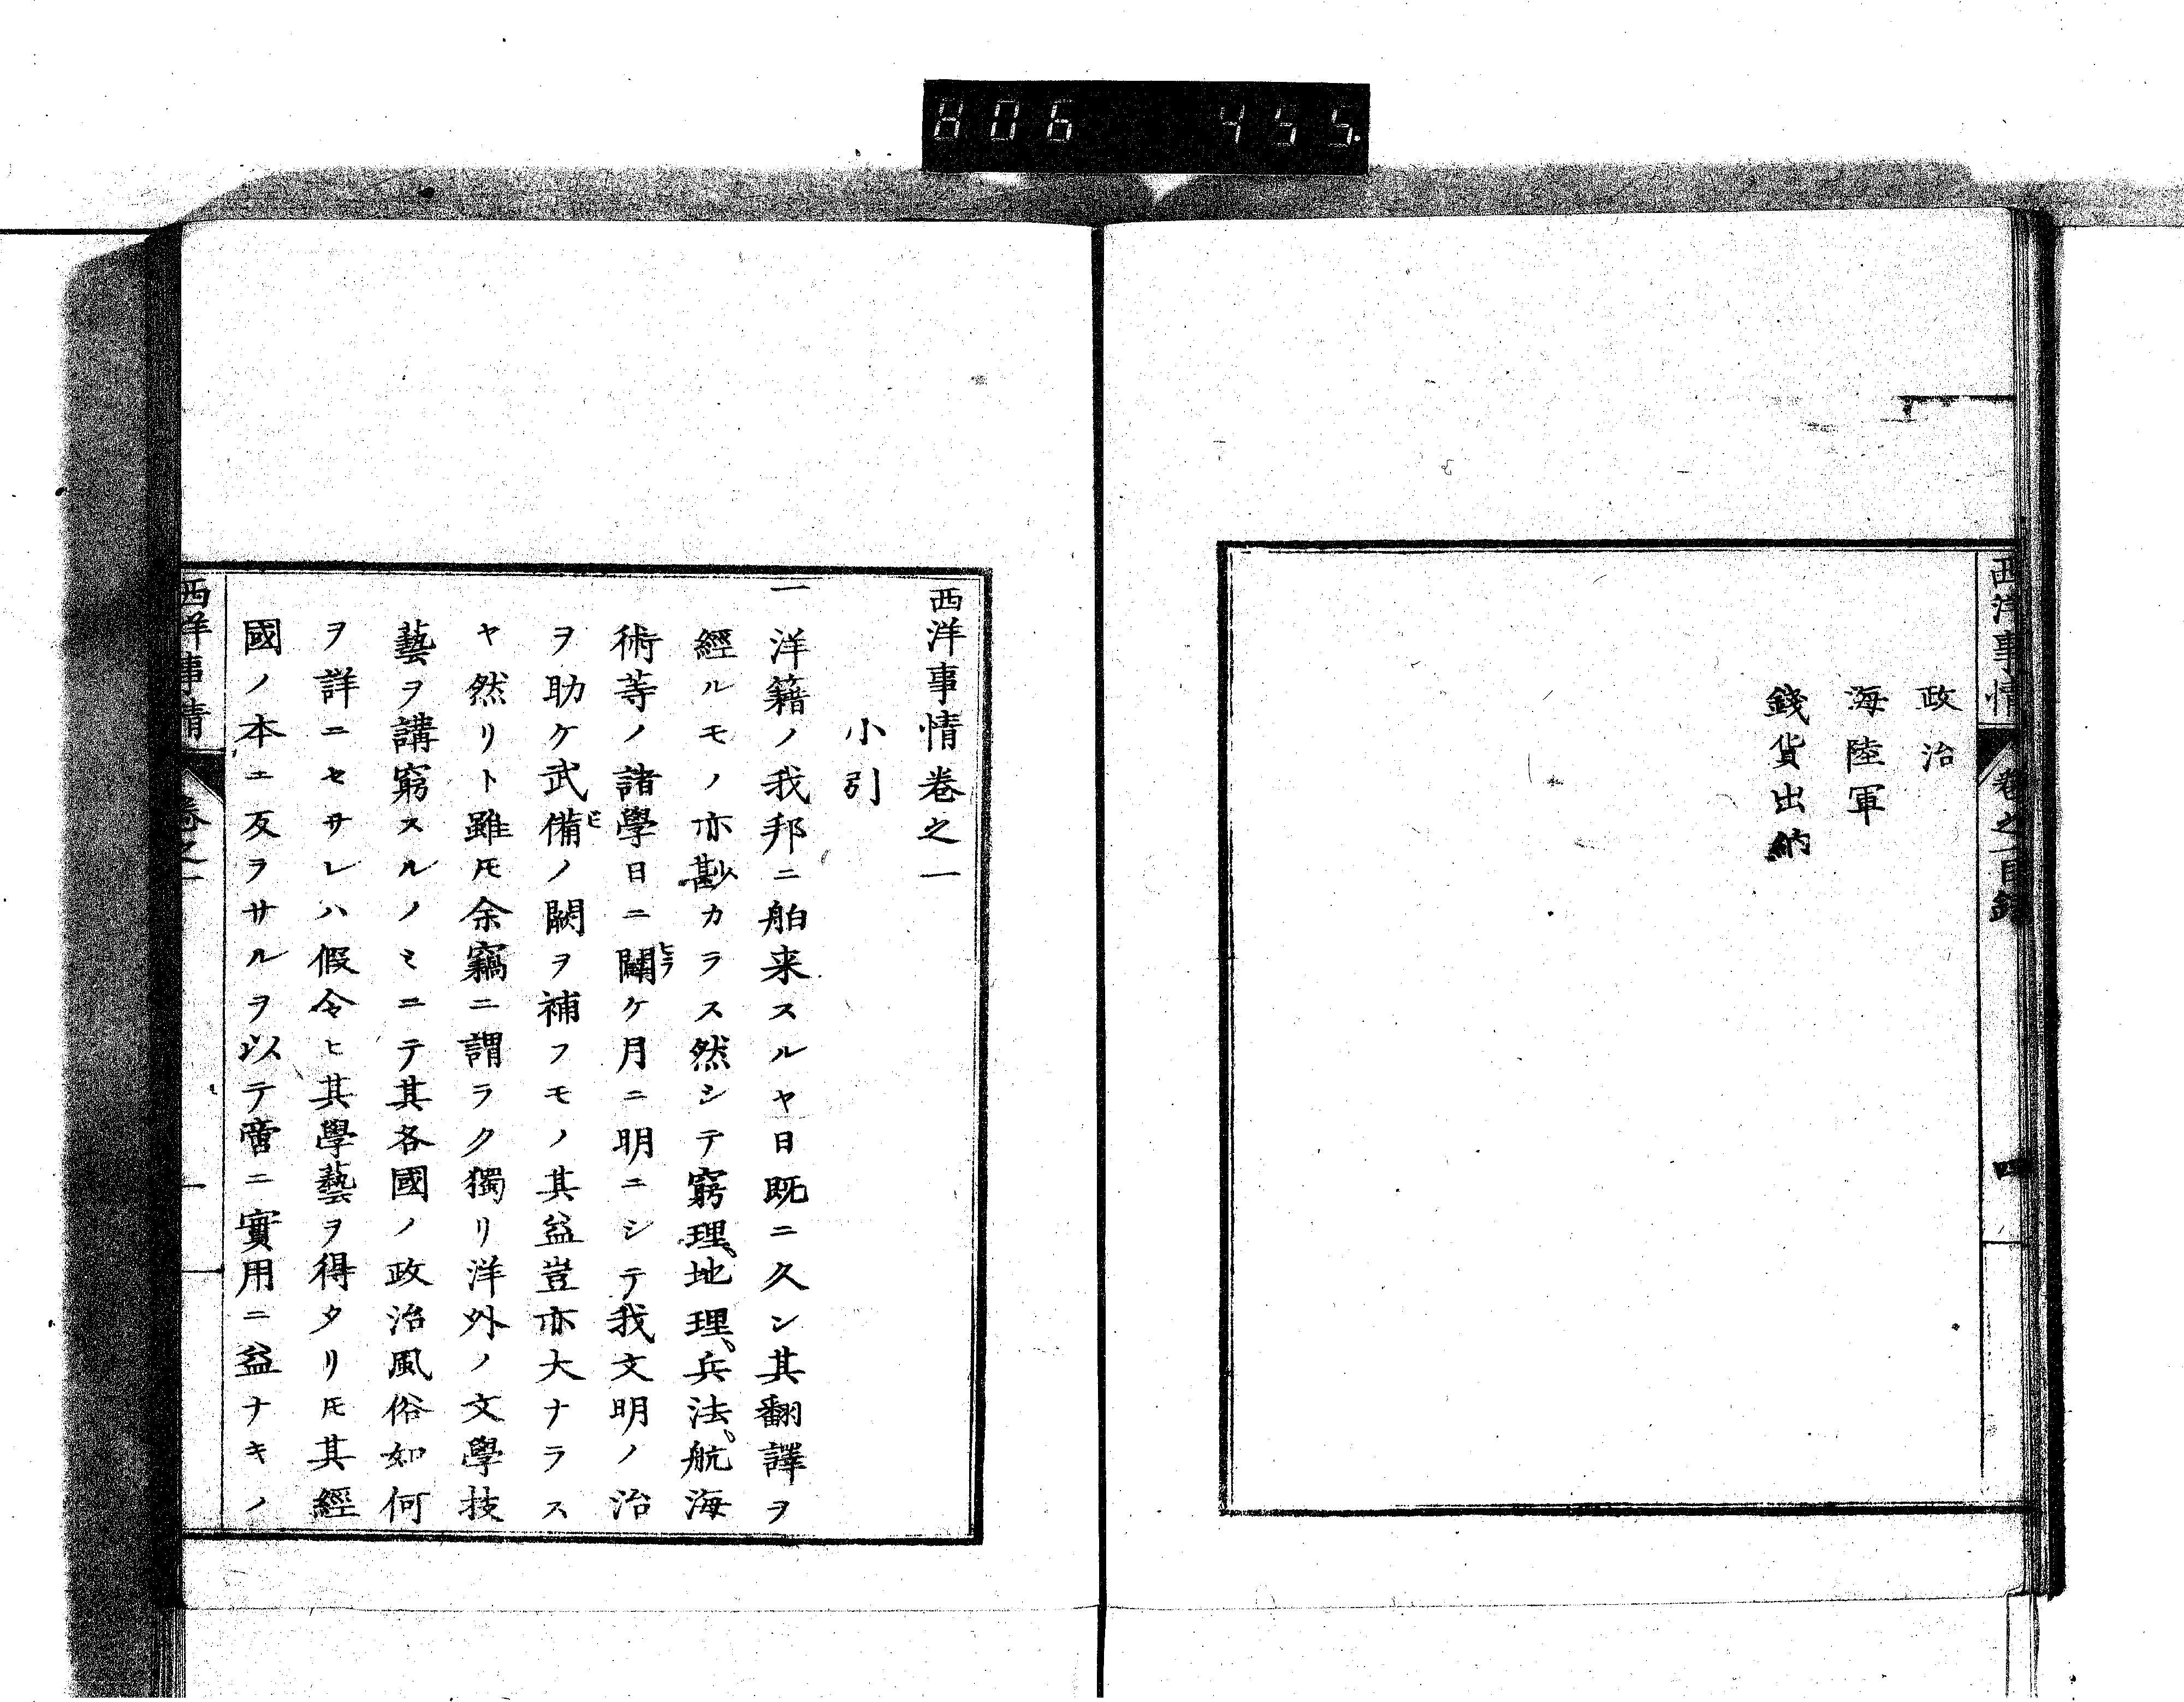 806 455.
西洋事情 卷之一目錄 四
政治
海陸軍
錢貨出納
西洋事情卷之一
小引
一洋籍ノ我邦ニ舶来スルヤ日既ニ久シ其翻譯ヲ
經ルモノ亦尠カラス然シテ窮理、地理、兵法、航海
術等ノ諸學日ニ闢ヒラケ月ニ明ニシテ我文明ノ治
ヲ助ケ武備ビノ闕ヲ補フモノ其益豈亦大ナラス
ヤ然リト雖𪜈余竊ニ謂ラク獨リ洋外ノ文學技
藝ヲ講窮スルノミニテ其各國ノ政治風俗如何
ヲ詳ニセサレハ假令ヒ其學藝ヲ得タリ𪜈其經
國ノ本ニ反ラサルヲ以テ啻ニ實用ニ益ナキノ
西洋事情 卷之一 一